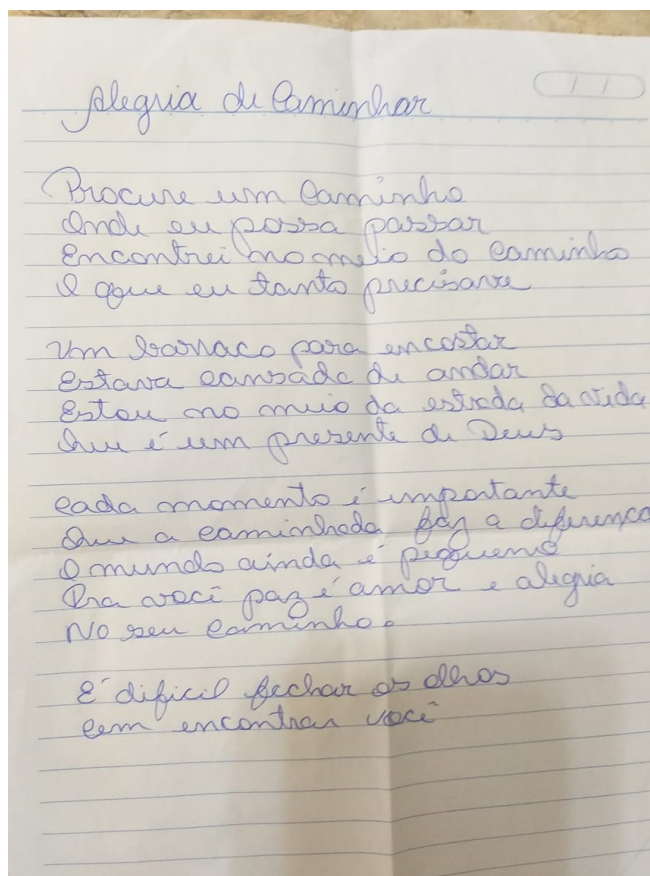 Alegria de Caminhar
Procure um Caminho
Onde eu possa passar
Encontrei no meio do caminho
O que eu tanto precisava
Um barraco para encostar
Estava cansado de andar
Estou no meio da estrada da vida
Que é um presente de Deus
Cada momento é importante
Que a caminhada faz a diferença
O mundo ainda é pequeno
Pra você paz é amor e alegria
No seu caminho.
É dificil fechar os olhos
Sem encontrar você